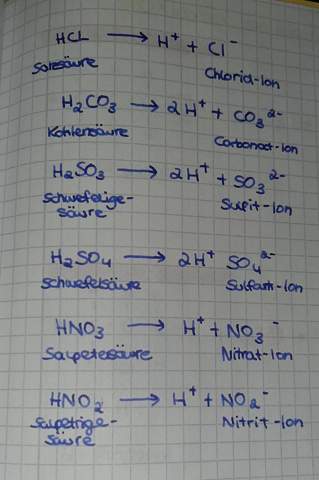 HCL → H⁺ + Cl⁻
Salzsäure Chlorid-Ion
H₂CO₃ → 2H⁺ + CO₃²⁻
Kohlensäure Carbonat-Ion
H₂SO₃ → 2H⁺ + SO₃²⁻
Schwefelige-
säure Sulfit-Ion
H₂SO₄ → 2H⁺ SO₄²⁻
Schwefelsäure Sulfat-Ion
HNO₃ → H⁺ + NO₃⁻
Salpetesäure Nitrat-Ion
HNO₂ → H⁺ + NO₂⁻
Salpetrige- Nitrit-Ion
säure